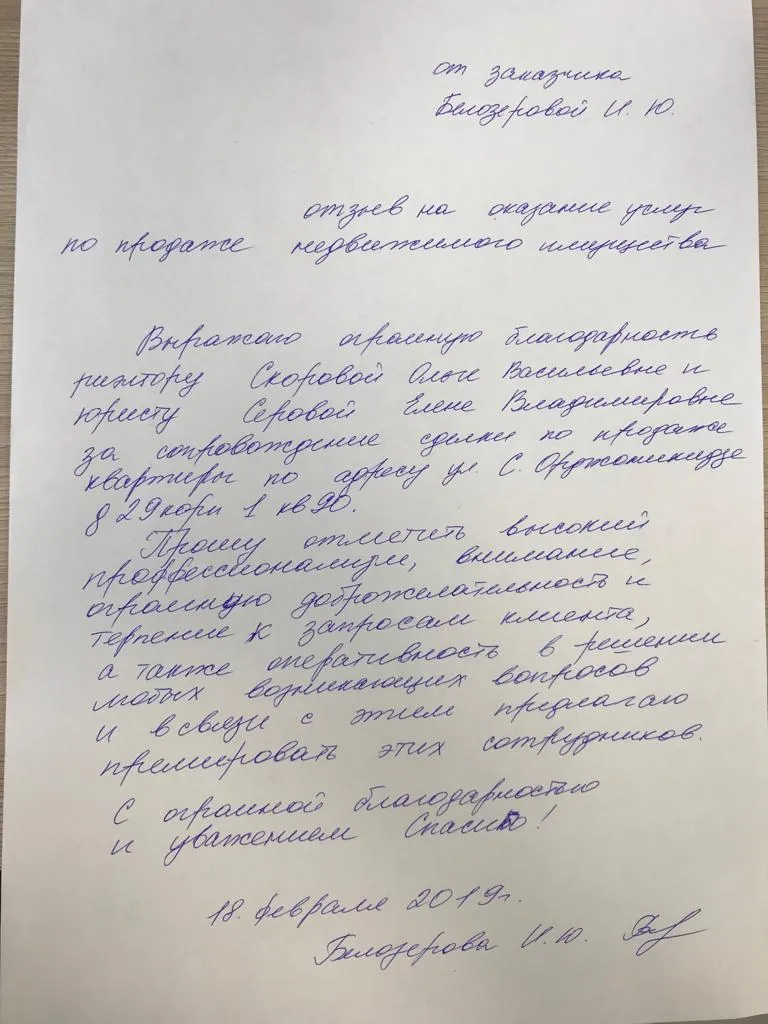 от заказчика
Белозеровой И. Ю.
отзыв на оказание услуг
по продаже недвижимого имущества
Выражаю огромную благодарность
риэлтору Скоровой Ольге Васильевне и
юристу Серовой Елене Владимировне
за сопровождение сделки по продаже
квартиры по адресу ул. С. Орджоникидзе
д 29 корп 1 кв 90.
Прошу отметить высокий
профессионализм, внимание,
огромную доброжелательность и
терпение к запросам клиента,
а также оперативность в решении
любых возникающих вопросов
и в связи с этим предлагаю
премировать этих сотрудников.
С огромной благодарностью
и уважением Спасибо!
18. февраля 2019г.
Белозерова И. Ю.